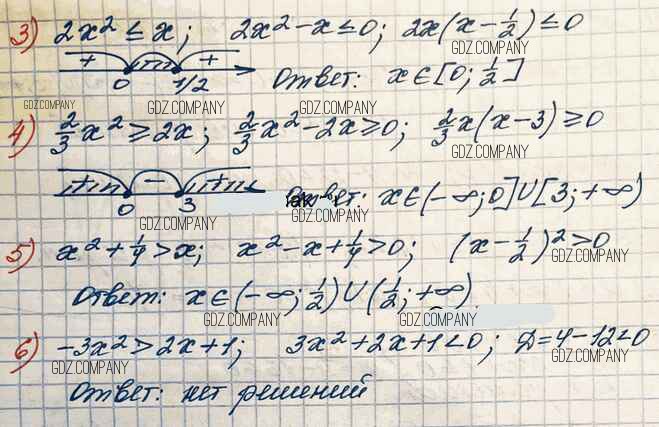 3) 2x² ≤ x; 2x² - x ≤ 0; 2x(x - 1/2) ≤ 0
GDZ.COMPANY
+ - +
0 1/2 Ответ: x ∈ [0; 1/2]
GDZ.COMPANY GDZ.COMPANY GDZ.COMPANY GDZ.COMPANY
4) 2/3x² ≥ 2x; 2/3x² - 2x ≥ 0; 2/3x(x - 3) ≥ 0
GDZ.COMPANY GDZ.COMPANY GDZ.COMPANY
+ - +
0 3 Ответ: x ∈ (-∞; 0] ∪ [3; +∞)
GDZ.COMPANY GDZ.COMPANY
5) x² + 1/4 > x; x² - x + 1/4 > 0; (x - 1/2)² > 0
GDZ.COMPANY GDZ.COMPANY GDZ.COMPANY
Ответ: x ∈ (-∞; 1/2) ∪ (1/2; +∞)
GDZ.COMPANY GDZ.COMPANY
6) -3x² > 2x + 1; 3x² + 2x + 1 < 0; Д = 4 - 12 < 0
GDZ.COMPANY GDZ.COMPANY
Ответ: нет решений